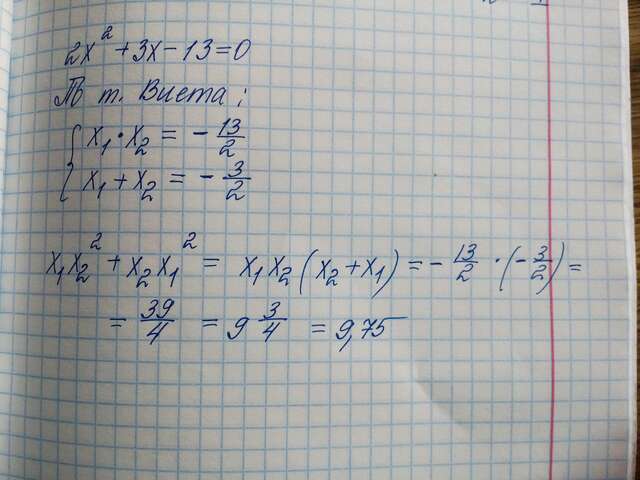 2x² + 3x - 13 = 0
По т. Виета:
{ x₁ · x₂ = - 13/2
x₁ + x₂ = - 3/2
x₁x₂² + x₂x₁² = x₁x₂(x₂ + x₁) = - 13/2 · (- 3/2) =
= 39/4 = 9 3/4 = 9,75